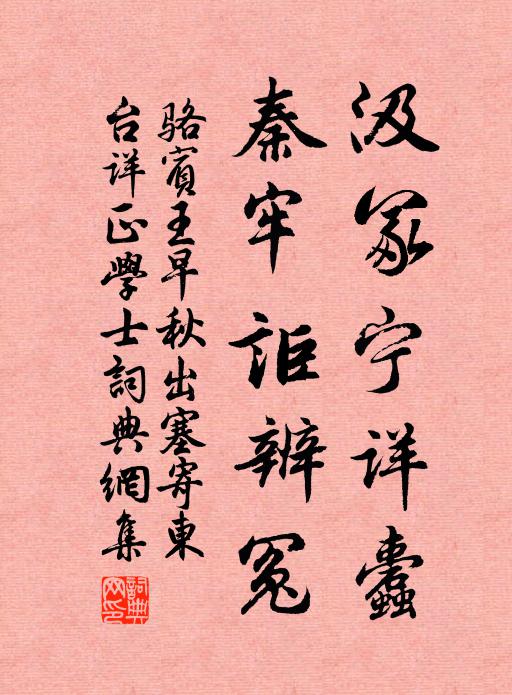 汲冢宁詳蠹
秦牢詎辨冤
駱賓王早秋出塞寄東
台詳正學士詞典網集
詞典
网印